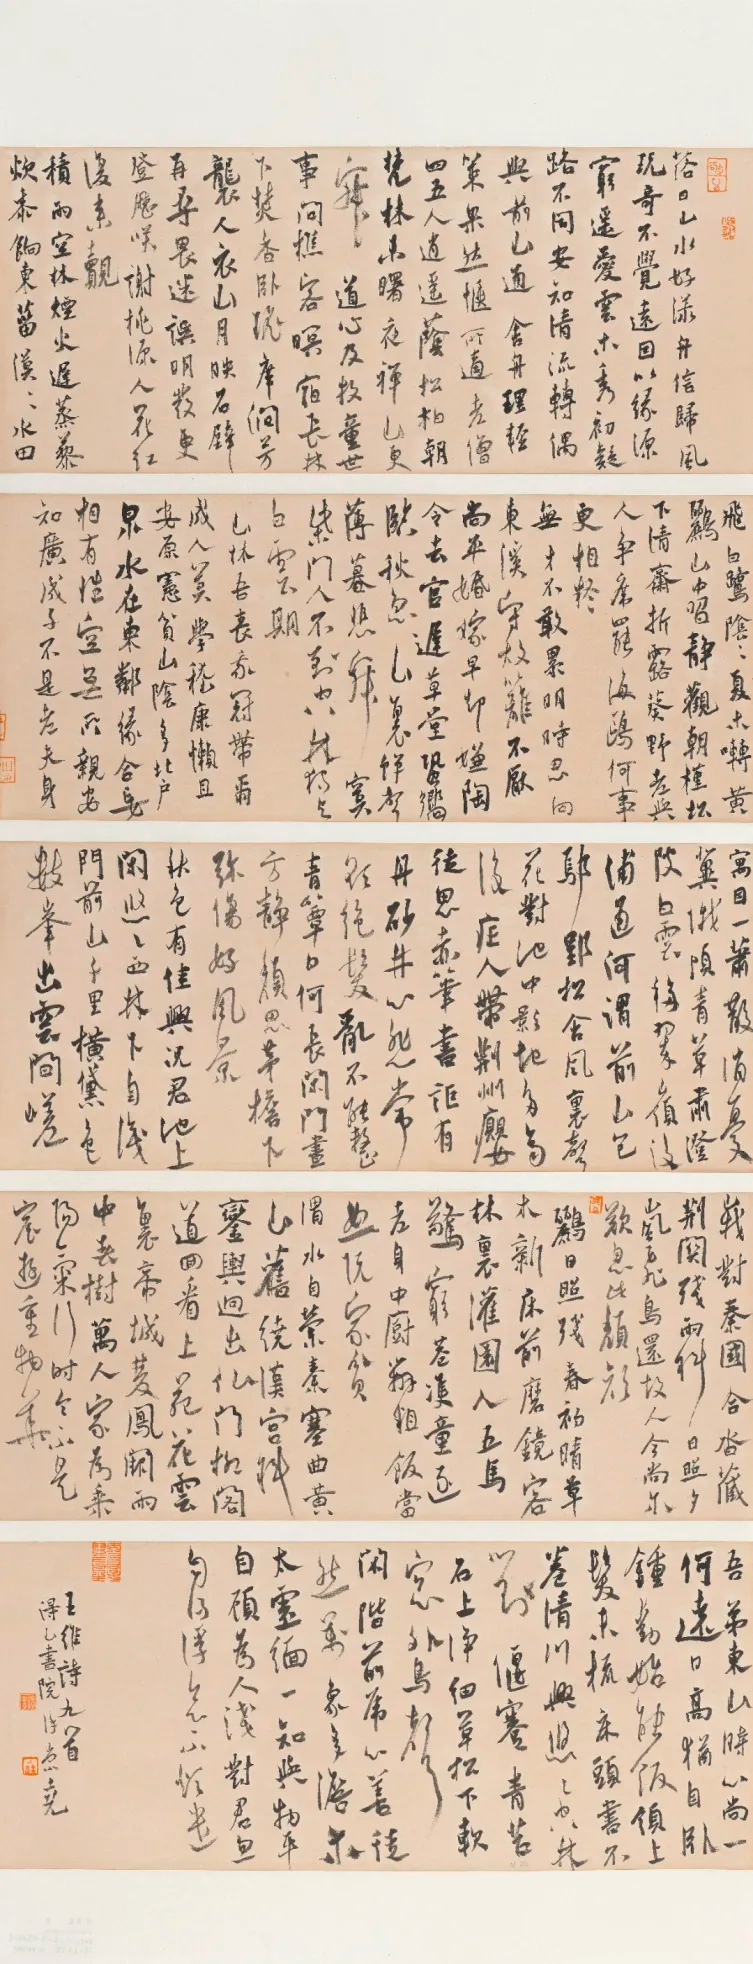 落日山水好漾舟信歸風
玩奇不覺遠因以緣源
窮遙愛雲木秀初疑
路不同安知清流轉偶
與前山通舍舟理輕
策果然愜所適老僧
四五人逍遙蔭松柏朝
梵林未曙夜禪山更
寂道心及牧童世
事問樵客暝宿長林
下焚香臥瑤席澗芳
襲人衣山月映石壁
再尋畏迷誤明發更
登歷笑謝桃源人花紅
復來覿
積雨空林煙火遲蒸藜
炊黍餉東菑漠〻水田
飛白鷺陰〻夏木囀黃
鸝山中習靜觀朝槿松
下清齋折露葵野老與
人爭席罷海鷗何事
更相疑
無才不敢累明時思向
東溪守故籬不厭
尚平婚嫁早却嫌陶
令去官遲草堂蛩響
臨秋急山裏蟬聲
薄暮悲寂寞
柴門人不到空林獨與
白雲期
山林吾喪我冠帶爾
成人莫學嵇康懶且
安原憲貧山陰多北戶
泉水在東鄰緣合妄
相有性空無所親安
知廣成子不是老夫身
寓目一蕭散消憂
冀俄頃青草肅澄
陂白雲移翠嶺後
沔通河渭前山包
鄢郢松含風裏聲
花對池中影地多齊
後瘧人帶荊州癭
徒思赤筆書詎有
丹砂井心悲常
欲絕髮亂不能整
青簟日何長閑門晝
方靜頹思茅檐下
彌傷好風景
秋色有佳興況君池上
閑悠〻西林下自識
門前山千里橫黛色
數峯出雲間嵯
峨對秦國合沓藏
荊關殘雨斜日照夕
嵐飛鳥還故人今尚爾
歎息此頹顏
鸝日照殘春初晴草
木新床前磨鏡客
林裏灌園人五馬
驚窮巷雙童逐
老身中廚辦粗飯當
恕阮家貧
渭水自縈秦塞曲黃
山舊繞漢宮斜
鑾輿迴出仙門柳閣
道回看上苑花雲
裏帝城雙鳳闕雨
中春樹萬人家為乘
陽氣行時令不是
宸遊重物華
吾弟東山時心尚一
何遠日高猶自臥
鍾動始能飯領上
髮未梳床頭書不
卷清川興悠〻空林
對偃蹇青苔
石上淨細草松下軟
窓外鳥聲
閑階前虎心善徒
然萬象多澹爾
太虛緬一知與物平
自顧為人淺對君忽
自得浮念不煩遣
王維詩九首